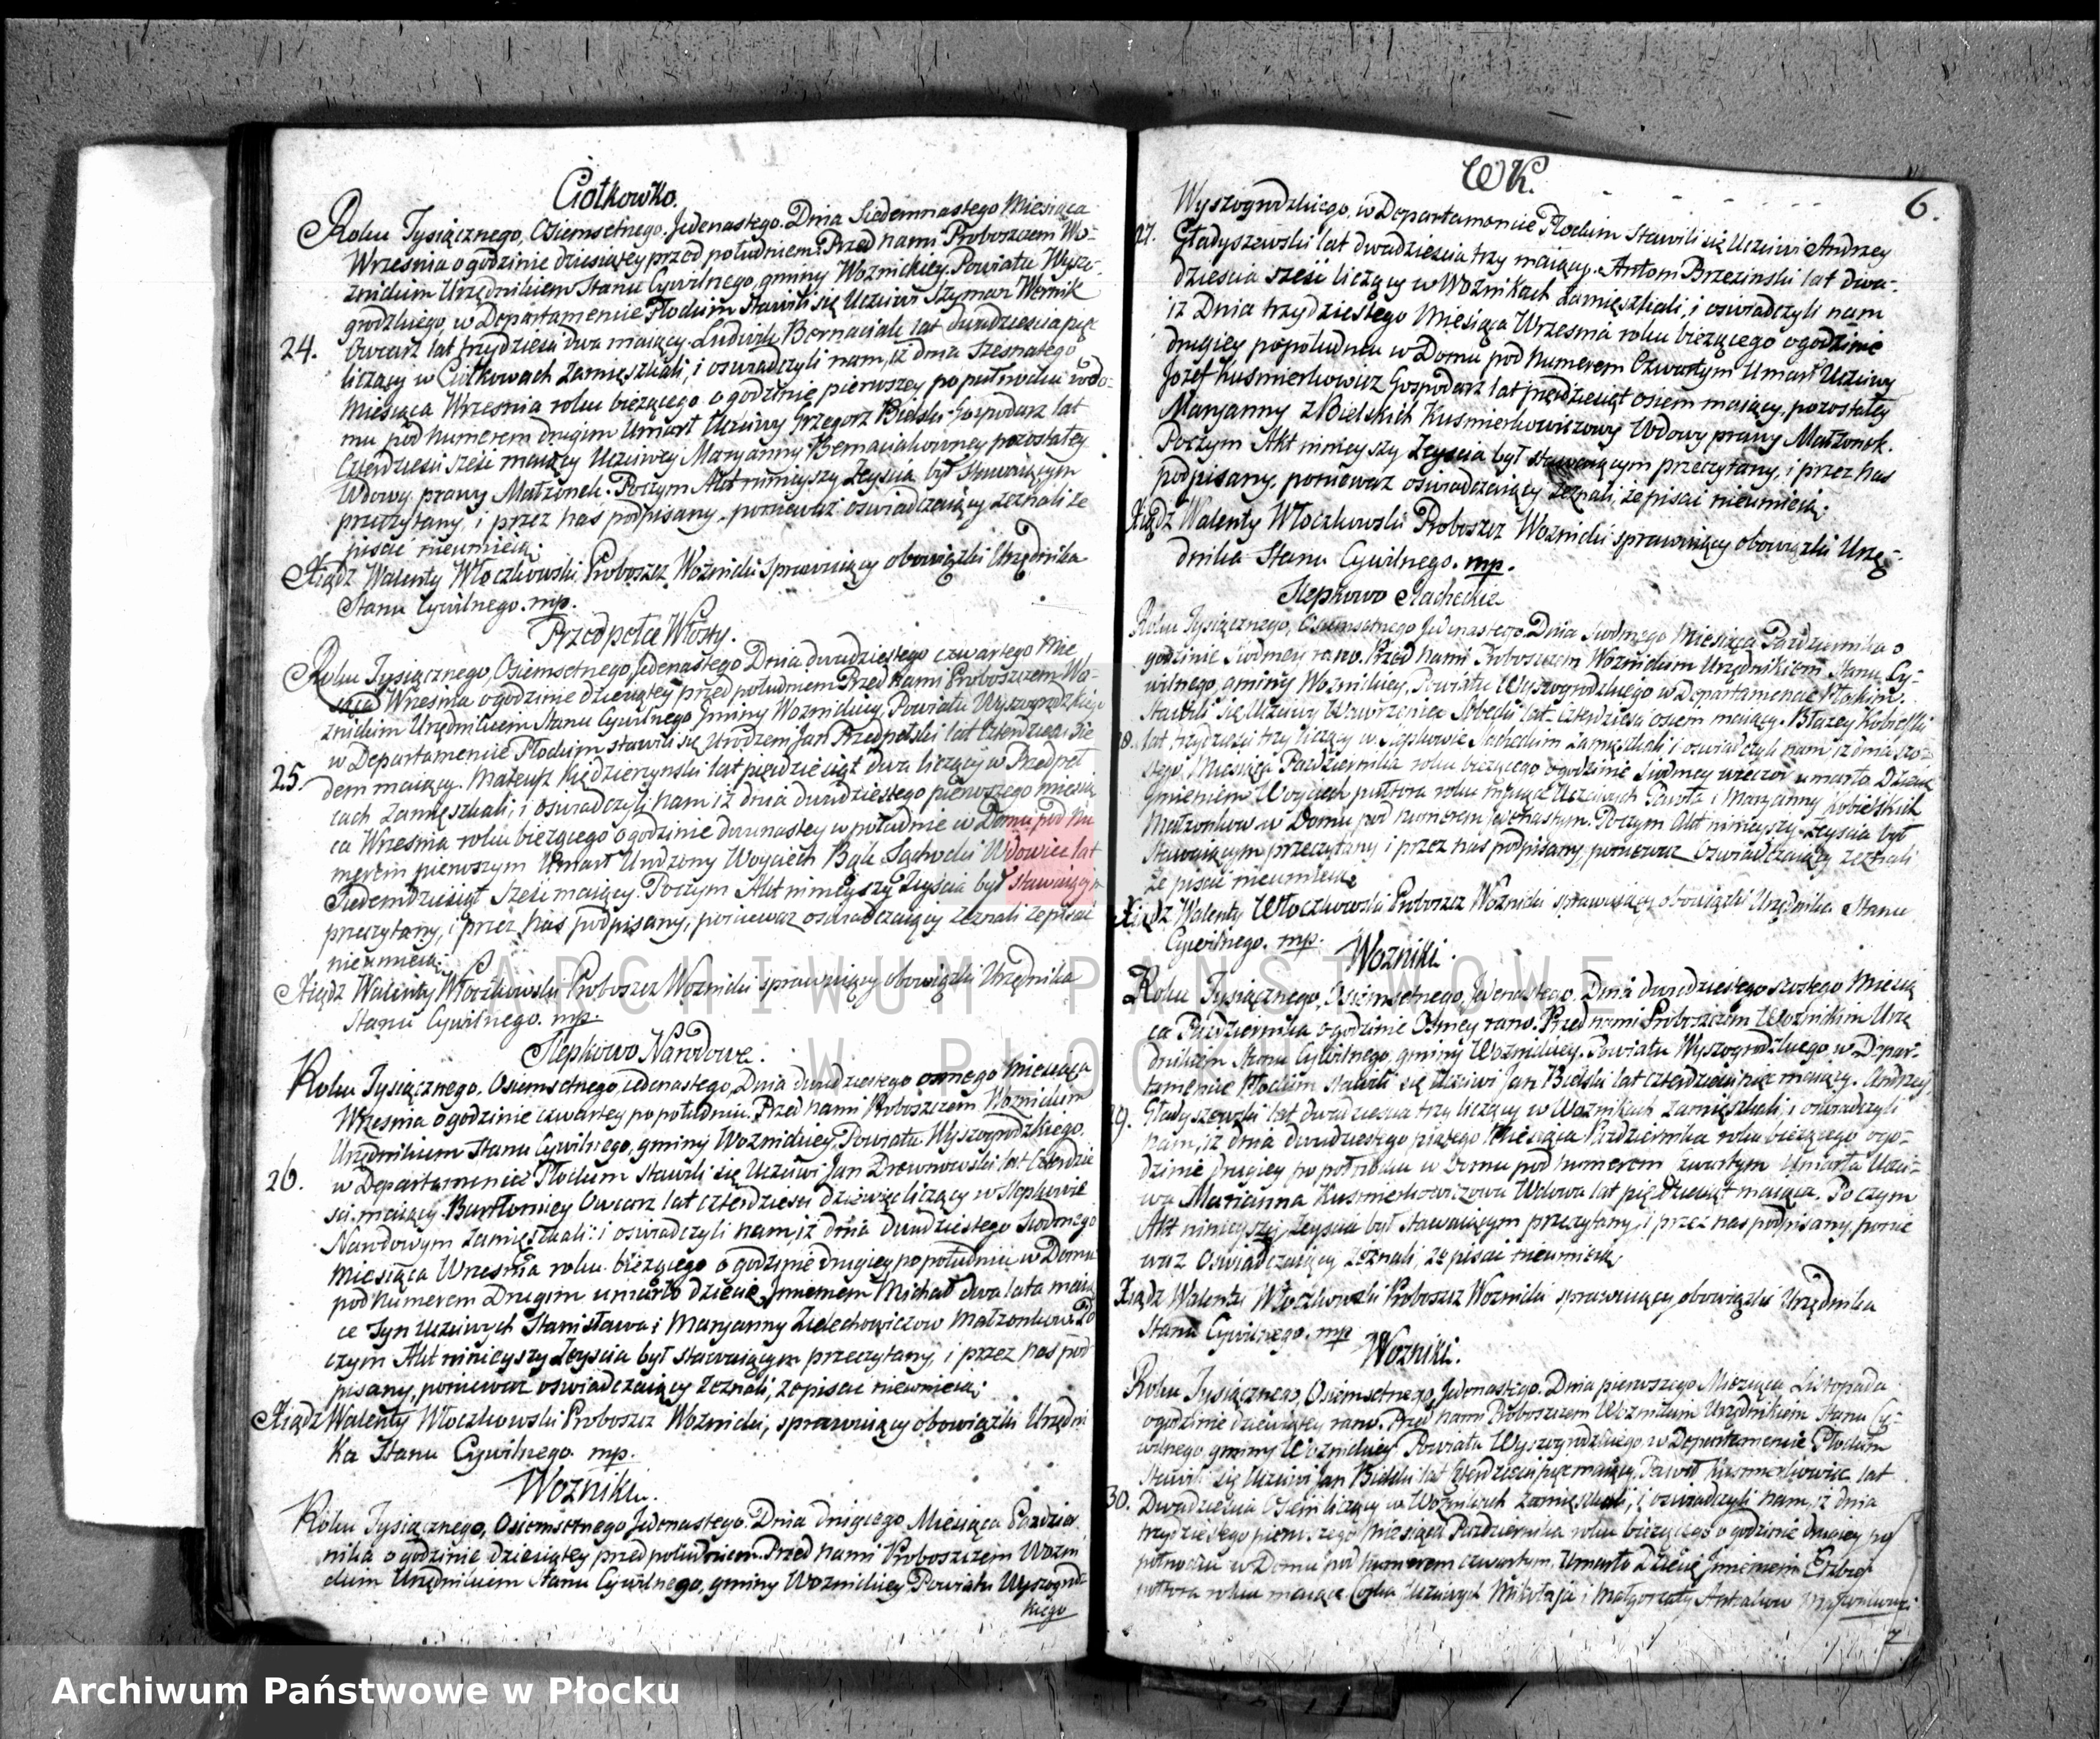 Ciotkowko.
Roku Tysiącznego, Osiemsetnego, Jedenastego. Dnia Siedemnastego Miesiąca
Września o godzinie dziesiątey przed południem. Przed nami Proboszczem Wo-
znickim Urzędnikiem Stanu Cywilnego, gminy Woznickiey Powiatu Wyszo-
grodzkiego, w Departamencie Płockim Stawili się Uczciwi Szymon
24. Owczarz lat trzydzieści dwa maiący. Ludwik Bernaciak lat dwadzieścia pięć
liczący w Ciotkowach zamięszkali, i oswiadczyli nam, iż dnia szesnastego
Miesiąca Września roku bieżącego o godzinie pierwszey po pułnocku w do-
mu pod Numerem drugim Umarł Uczciwy Grzegorz Bielski Gospodarz lat
Czterdzieści sześć maiący Uczciwey Maryanny Bernaciakowney pozostałey
Wdowy prawy Małżonek. Poczym Akt ninieyszy Zeyscia był Stawaiącym
przeczytany, i przez nas podpisany, ponieważ oswiadczaiący zeznali że
pisać nieumieią.
Xiądz Walenty Włoczkowski Proboszcz Woznicki Sprawuiący obowiązki Urzędnika
Stanu Cywilnego. mp.
Przedpełce Włosty.
Roku Tysiącznego, Osiemsetnego, Jedenastego Dnia dwudziestego czwartego Mie
siąca Września o godzinie dziesiątey przed południem Przed nami Proboszczem Wo-
znickim Urzędnikiem Stanu Cywilnego Gminy Woznickiey, Powiatu Wyszogrodzkiego
w Departamencie Płockim stawili się Urodzeni Jan Przedpełski lat Czterdzieści Sie
25. dem maiący. Mateusz Kędzierzynski lat pięćdziesiąt dwa liczący w Przedpeł
cach zamięszkali; i oswiadczyli nam iż dnia dwudziestego pierwszego miesią
ca Września roku bieżącego o godzinie dwunastey w południe w Domu pod Nu
merem pierwszym Umarł Urodzony Woyciech Bąk Sąchocki Wdowiec lat
Siedemdziesiąt Sześć maiący. Poczym Akt ninieyszy Zeyścia był stawaiącym
przeczytany, i przez nas podpisany, ponieważ oswiadczaiący zeznali że pisać
nieumieią.
Xiądz Walenty Włoczkowski Proboszcz Woznicki sprawuiący obowiązki Urzędnika
Stanu Cywilnego. mp.
Slepkowo Narodowe.
Roku Tysiącznego, Osiemsetnego, Jedenastego, Dnia dwudziestego osmego Miesiąca
Września o godzinie czwartey po południu. Przed nami Proboszczem Woznickim
Urzędnikiem Stanu Cywilnego, gminy Woznickiey, Powiatu Wyszogrodzkiego,
26. w Departamencie Płockim stawili się Uczciwi Jan Drewnowski lat Czterdzie
ści maiący. Bartłomiey Owczarz lat czterdzieści dziewięć liczący w Slepkowie
Narodowym zamięszkali: i oswiadczyli nam, iż dnia dwudziestego Siodmego
Miesiąca Września roku bieżącego o godzinie drugiey po południu w Domu
pod Numerem Drugim umarło dziecie, Jmieniem Michał dwa lata maią
ce Syn Uczciwych Stanisława i Maryanny Zelechowiczow Małżonkow. Po
czym Akt ninieyszy Zeyscia był stawaiącym przeczytany, i przez nas pod
pisany, ponieważ oswiadczaiący zeznali, że pisać nieumieią.
Xiądz Walenty Włoczkowski Proboszcz Woznicki, sprawuiący obowiązki Urzędni
ka Stanu Cywilnego. mp.
Wozniki.
Roku Tysiącznego, Osiemsetnego Jedenastego. Dnia drugiego Miesiąca Pazdzier
nika o godzinie dziesiątey przed południem. Przed nami Proboszczem Wozni
ckim Urzędnikiem Stanu Cywilnego, gminy Woznickiey Powiatu Wyszogrodz-
kiego
WK.
6.
Wyszogrodzkiego, w Departamencie Płockim Stawili się Uczciwi Andrzey
27. Gładyszewski lat dwadzieścia trzy maiący. Antoni Brzezinski lat dwa-
dzieścia sześć liczący w Woznikach zamięszkali, i oswiadczyli nam
iż Dnia trzydziestego Miesiąca Września roku bieżącego o godzinie
drugiey po południu w Domu pod Numerem Czwartym Umarł Uczciwy
Jozef Kusmierkowicz Gospodarz lat pięćdziesiąt osiem maiący, pozostałey
Maryanny z Bielskich Kusmierkowiczowy Wdowy prawy Małżonek.
Poczym Akt ninieyszy Zeyścia był stawaiącym przeczytany, i przez nas
podpisany, ponieważ oswiadczaiący zeznali, że pisać nieumieią.
Xiądz Walenty Włoczkowski Proboszcz Woznicki sprawuiący obowiązki Urzę-
dnika Stanu Cywilnego. mp.
Slepkowo Slacheckie
Roku Tysiącznego, Osiemsetnego Jedenastego Dnia Siodmego Miesiąca Pazdziernika o
godzinie Siodmey rano. Przed nami Proboszczem Woznickim Urzędnikiem Stanu Cy-
wilnego, gminy Woznickiey, Powiatu Wyszogrodzkiego w Departamencie Płockim.
Stawili się Uczciwy Wawrzeniec Sobecki lat Czterdzieści osiem maiący. Błazey Kobielski
lat trzydzieści trzy liczący w Slepkowie Slacheckim zamięszkali i oswiadczyli nam iż dnia szo-
stego, Miesiąca Pazdziernika roku bieżącego o godzinie Siodmey wieczor umarło Dziecie
Jmieniem Woyciech pułtora roku maiące Uczciwych Pawła i Maryanny Kobielskich
Małżonkow w Domu pod Numerem Jedenastym. Poczym Akt ninieyszy Zeyscia był
Stawaiącym przeczytany i przez nas podpisany, ponieważ Oświadczaiący zeznali
że pisać nieumieią
Xiądz Walenty Włoczkowski Proboszcz Woznicki sprawuiący obowiązki Urzędnika Stanu
Cywilnego. mp.
Wozniki.
Roku Tysiącznego, Osiemsetnego, Jedenastego. Dnia dwudziestego szostego Miesią
ca Pazdziernika o godzinie Osmey rano. Przed nami Proboszczem Woznickim Urzę
dnikiem Stanu Cywilnego, gminy Woznickiey. Powiatu Wyszogrodzkiego w Depar-
tamencie Płockim stawili się Uczciwi Jan Bielski lat czterdzieści pięć maiący. Andrzey
29. Gładyszewski lat dwadzieścia trzy liczący w Woznikach zamięszkali, i oswiadczyli
nam, iż dnia dwudziestego piątego Miesiąca Pazdziernika roku bieżącego o go-
dzinie drugiey po pułnocku w Domu pod Numerem czwartym Umarła Uczci-
wa Marianna Kusmierkowiczowa Wdowa lat pięćdziesiąt maiąca. Poczym
Akt ninieyszy Zeyscia był stawaiącym przeczytany, i przez nas podpisany, ponie
waż Oświadczaiący zeznali, że pisać nieumieią
Xiądz Walenty Włoczkowski Proboszcz Woznicki sprawuiący obowiązki Urzędnika
Stanu Cywilnego. mp
Wozniki.
Roku Tysiącznego, Osiemsetnego, Jedenastego. Dnia pierwszego Miesiąca Listopada
o godzinie dziewiątey rano. Przed nami Proboszczem Woznickim Urzędnikiem Stanu Cy-
wilnego gminy Woznickiey Powiatu Wyszogrodzkiego, w Departamencie Płockim
Stawili się Uczciwi Jan Bielski lat czterdzieści pięć maiący. Paweł Kusmierkowicz lat
30. Dwadzieścia Osiem liczący w Woznikach zamięszkali, i oswiadczyli nam, iż dnia
trzydziestego pierwszego Miesiąca Pazdziernika roku bieżącego o godzinie drugiey po
pułnocku w Domu pod Numerem czwartym. Umarło Dziecie Jmieniem
pułtora roku maiące Corka Uczciwych Mikołaja i Małgorzaty
ARCHIWUM PAŃSTWOWE
W PŁOCKU
Archiwum Państwowe w Płocku